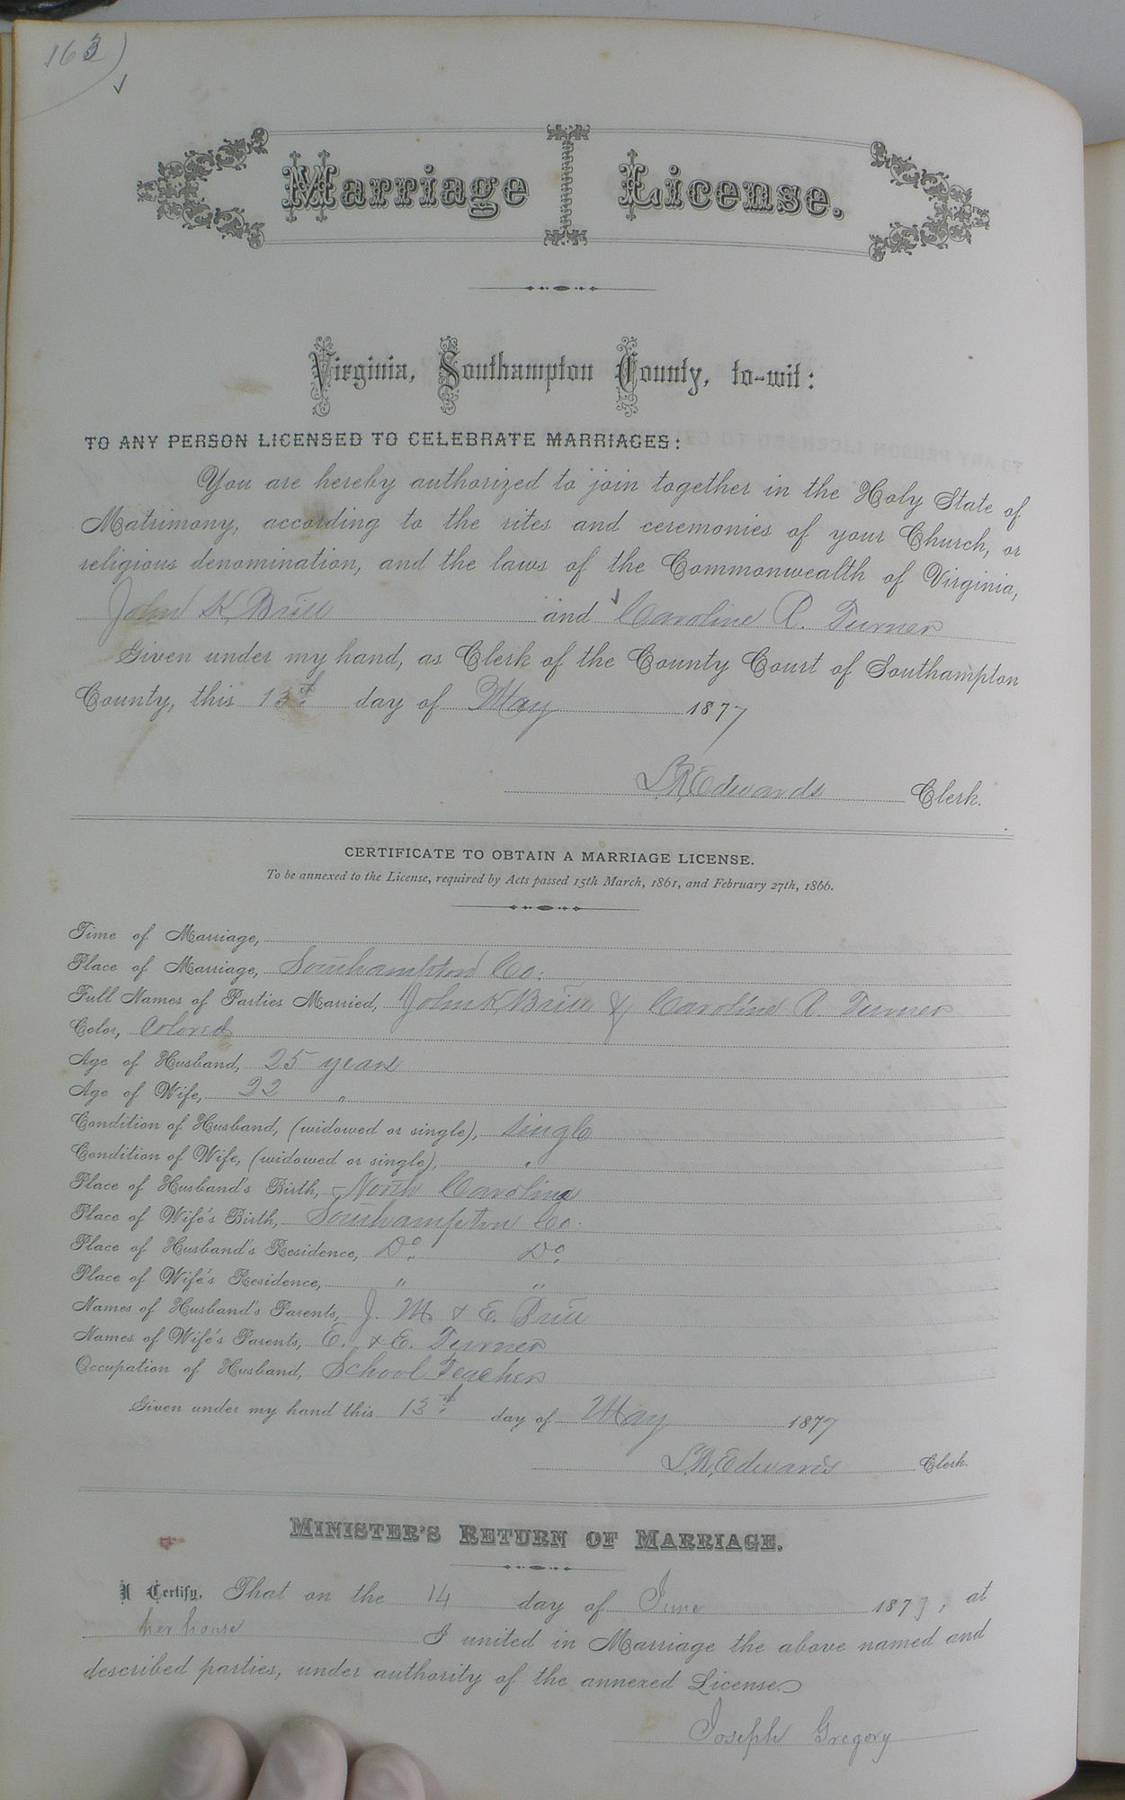 163)
Marriage License.
Virginia, Southampton County, to-wit:
TO ANY PERSON LICENSED TO CELEBRATE MARRIAGES:
You are hereby authorized to join together in the Holy State of
Matrimony, according to the rites and ceremonies of your Church, or
religious denomination, and the laws of the Commonwealth of Virginia,
John K and Caroline R. Turner
Given under my hand, as Clerk of the County Court of Southampton
County, this 13th day of May 1877
L.R. Edwards Clerk.
CERTIFICATE TO OBTAIN A MARRIAGE LICENSE.
To be annexed to the License, required by Acts passed 15th March, 1861, and February 27th, 1866.
Time of Marriage,
Place of Marriage, Southampton Co.
Full Names of Parties Married, John K & Caroline R. Turner
Color, Colored
Age of Husband, 25 years
Age of Wife, 22 "
Condition of Husband, (widowed or single), Single
Condition of Wife, (widowed or single), "
Place of Husband's Birth, North Carolina
Place of Wife's Birth, Southampton Co.
Place of Husband's Residence, Do. Do.
Place of Wife's Residence, " "
Names of Husband's Parents, J. M. & E.
Names of Wife's Parents, E. & E. Turner
Occupation of Husband, School Teacher
Given under my hand this 13th day of May 1877
L.R. Edwards Clerk.
MINISTER'S RETURN OF MARRIAGE.
I Certify, That on the 14 day of June 1877, at
her house I united in Marriage the above named and
described parties, under authority of the annexed License
Joseph Gregory